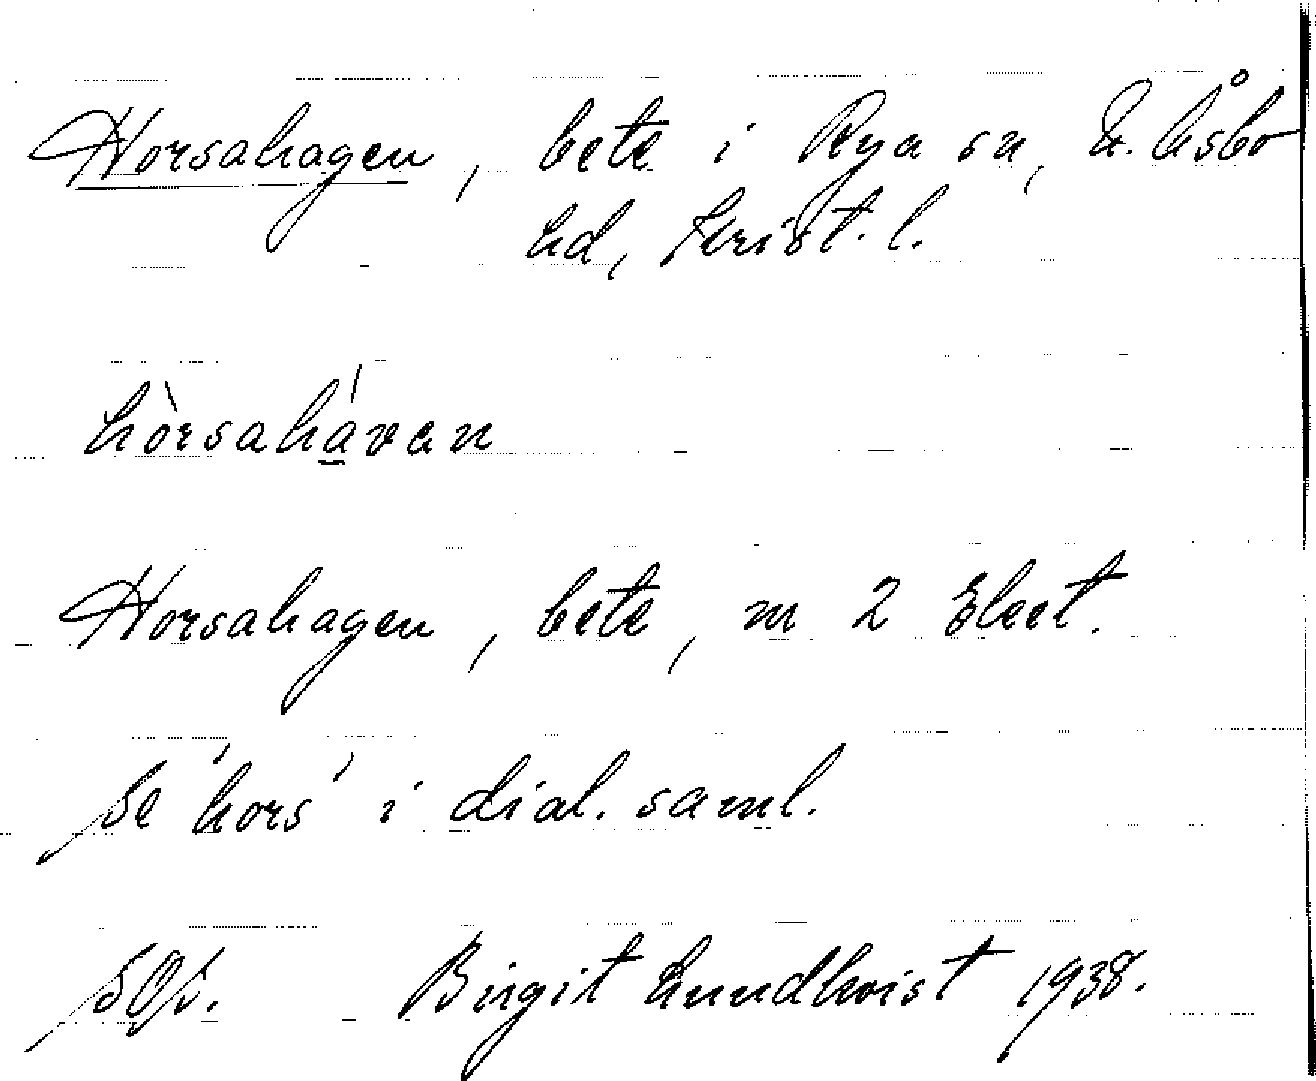 Horsahagen, bete i Rya sn, N. Åsbo
hd, Krist. l.
hòrsahávan
Horsahagen, bete, m 2 Elest.
Se 'hors' i dial. saml.
SOS. Birgit Lundkvist 1938.